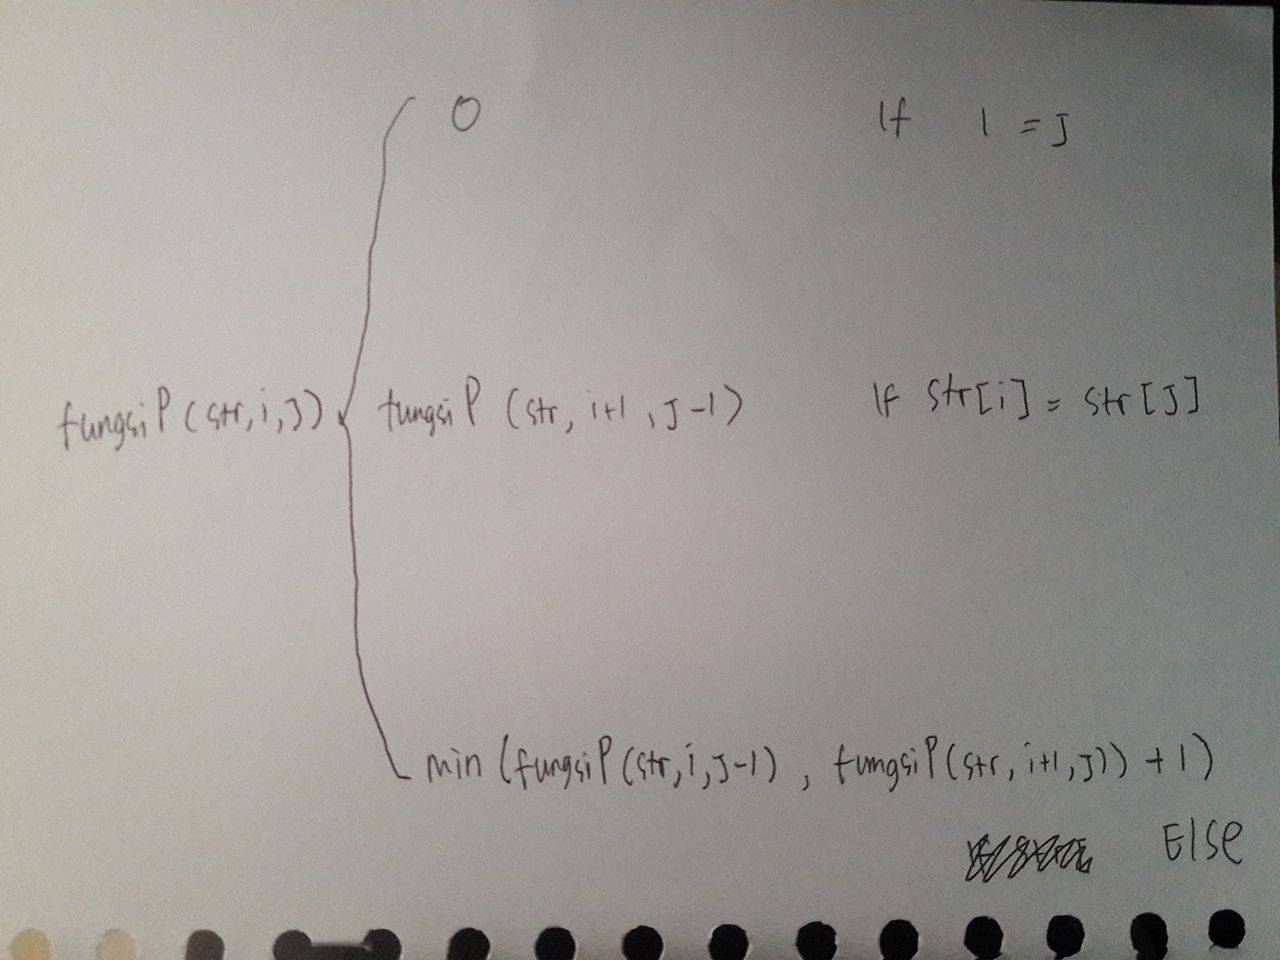 0 If i = j
fungsiP(str,i,j) fungsiP (str, i+1, j-1) If str[i] = str[j]
min (fungsiP(str,i,j-1), fungsiP(str,i+1,j)) + 1)
Else